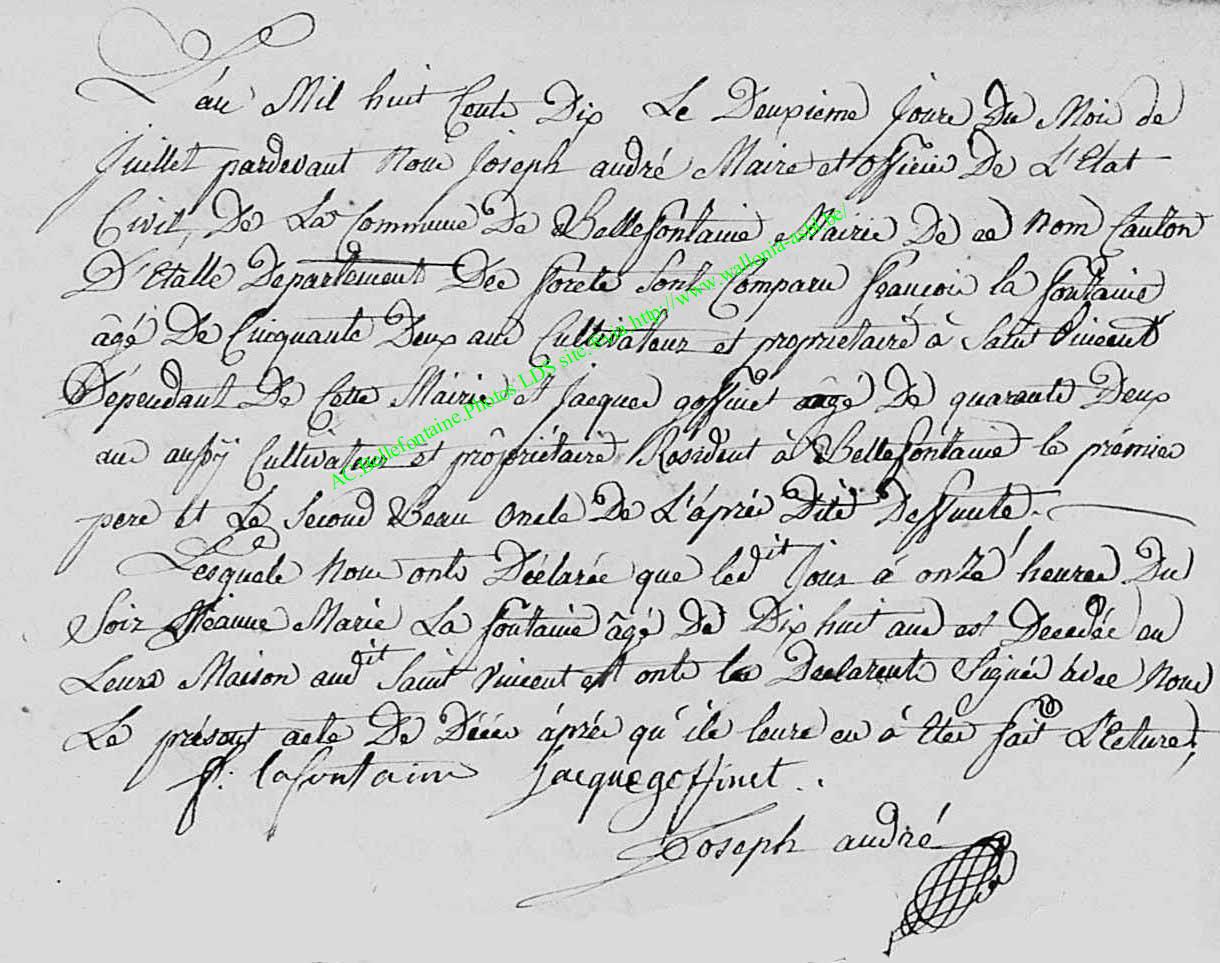 L'an Mil huit Cents Dix Le Deuxieme Jours Du Mois de
Juillet pardevant Nous Joseph andré Maire et officier De L'Etat
Civil, De La Commune De Bellefontaine Mairie De ce Nom Canton
D'Etalle Departement Des forets Sont Comparu françois la fontaine
âgé De Cinquante Deux ans Cultivateur et proprietaire à Saint Vincent
Dépendant De Cette Mairie et Jacques goffinet âgé De quarante Deux
ans aussÿ Cultivateur et propriétaire Résident à Bellefontaine le prémier
pere et Le Second Beau Oncle De L'áprés Dite Deffunte.
Lesquels Nous onts Déclarée que ledit Jour à onze heures Du
Soir Jéanne Marie La fontaine âgé De Dix huit ans est Decedée en
Leurs Maison audit Saint Vincent et onts les Declarents Signés avec Nous
Le présent acte De Décés áprés qu'ils leurs en à êtes fait L'Ecture,
f. lafontaine Jacque goffinet.
Joseph andré
AC.Bellefontaine.Photos LDS site Asbl http://www.wallonia-asbl.be/